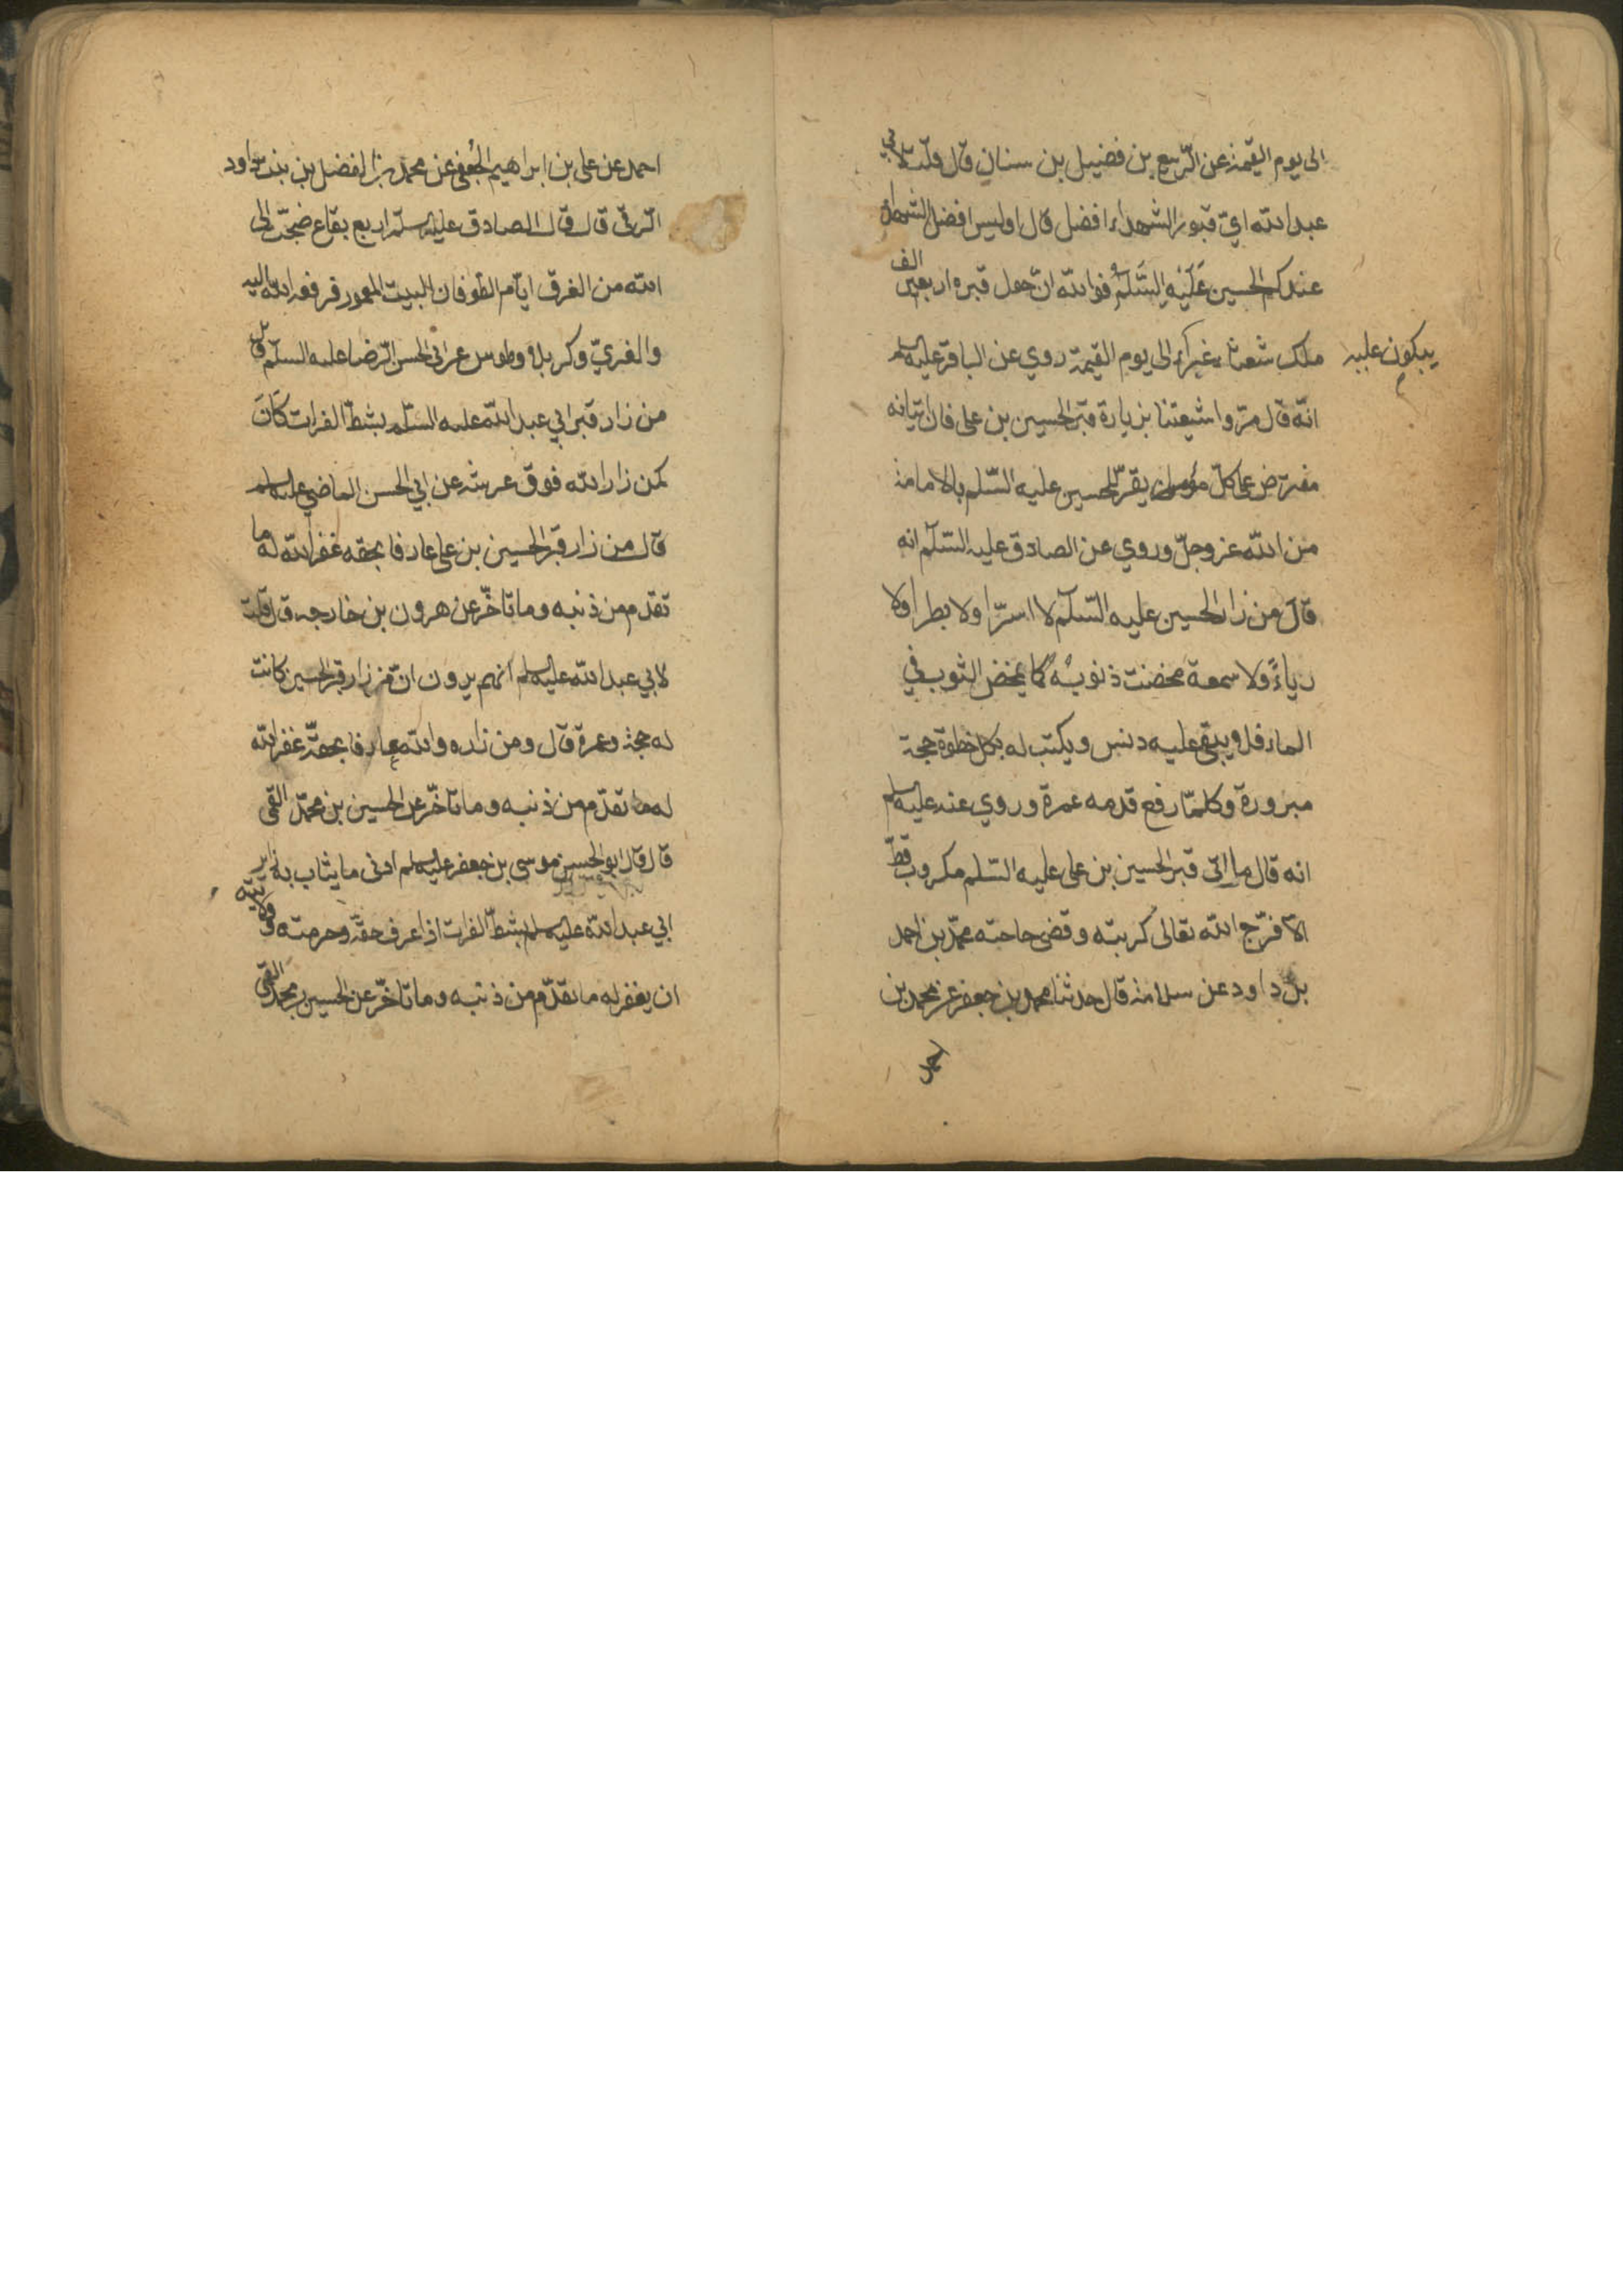 الى يوم القيمة عن الرّبيع بن فضيل بن سنان قال قلت لابي
عبد الله ايّ قبور الشهداء افضل قال اوليس افضل الشهداء
عندكم الحسين عَلَيْهِ السَّلَمُ فوالله انّ حول قبره اربعين الف
ملك شعثاء غبراء الى يوم القيمة روي عن الباقر عليه السلم
يبكون عليه
انّه قال مرّوا شيعتنا بزيارة قبر الحسين بن على فان اتيانه
مفترض على كلّ مؤمن يقرّ للحسين عليه السّلم بالامامة
من الله عز وجلّ وروي عن الصادق عليه السّلم انه
قال من زار الحسين عليه السّلم لا اشرّا ولا بطرا ولا
رياءً ولا سمعة مخضت ذنوبه كما يمخض الثوب في
الماء فلا ويبقى عليه دنس ويكتب له بكل خطوة حجة
مبرورة وكلمّا رفع قدمه عمرة وروي عنه عليه السلم
انه قال ما اتى قبر الحسين بن على عليه السّلم مكروب قطّ
الّا فرّج الله تعالى كربته وقضى حاجته محمّد بن احمد
بن داود عن سلامة قال حدثنا محمد بن جعفر عن محمد بن
احمد
احمد عن على بن ابراهيم الجُعفى عن محمد بن الفضل بن بنت داود
الرّقى قال قال الصادق عليه السلم اربع بقاع ضجّت الى
الله من الغرق ايّام الطوفان البيت المعمور فرفعه الله اليه
والغريّ وكربلا وطوس عن ابى الحسن الرّضا عليه السلّم قال
من زار قبر ابي عبد الله عليه السّلم بشطّ الفرات كَانَ
كمن زار الله فوق عرشه عن ابي الحسن الماضي عليه السلم
قال من زار قبر الحسين بن على عارفا بحقه غفر الله له ما
تقدم من ذنبه وما تاخّر عن هرون بن خارجه قال قلت
لابي عبد الله عليه السلم انّهم يرون انّ من زار قبر الحسين كانت
له حجة وعمرة قال ومن زاره والله عارفا بحقّه غفر الله
له ما تقدّم من ذنبه وما تاخّر عن الحسين بن محمّد القمى
قال قال ابو الحسن موسى بن جعفر عليه السلم ادنى ما يثاب به زاير
ابي عبد الله عليه السلم بشطّ الفرات اذا عرف حقّه وحرمته وولايته
ان يغفر له ما تقدّم من ذنبه وما تاخّر عن الحسين بن محمد القمى